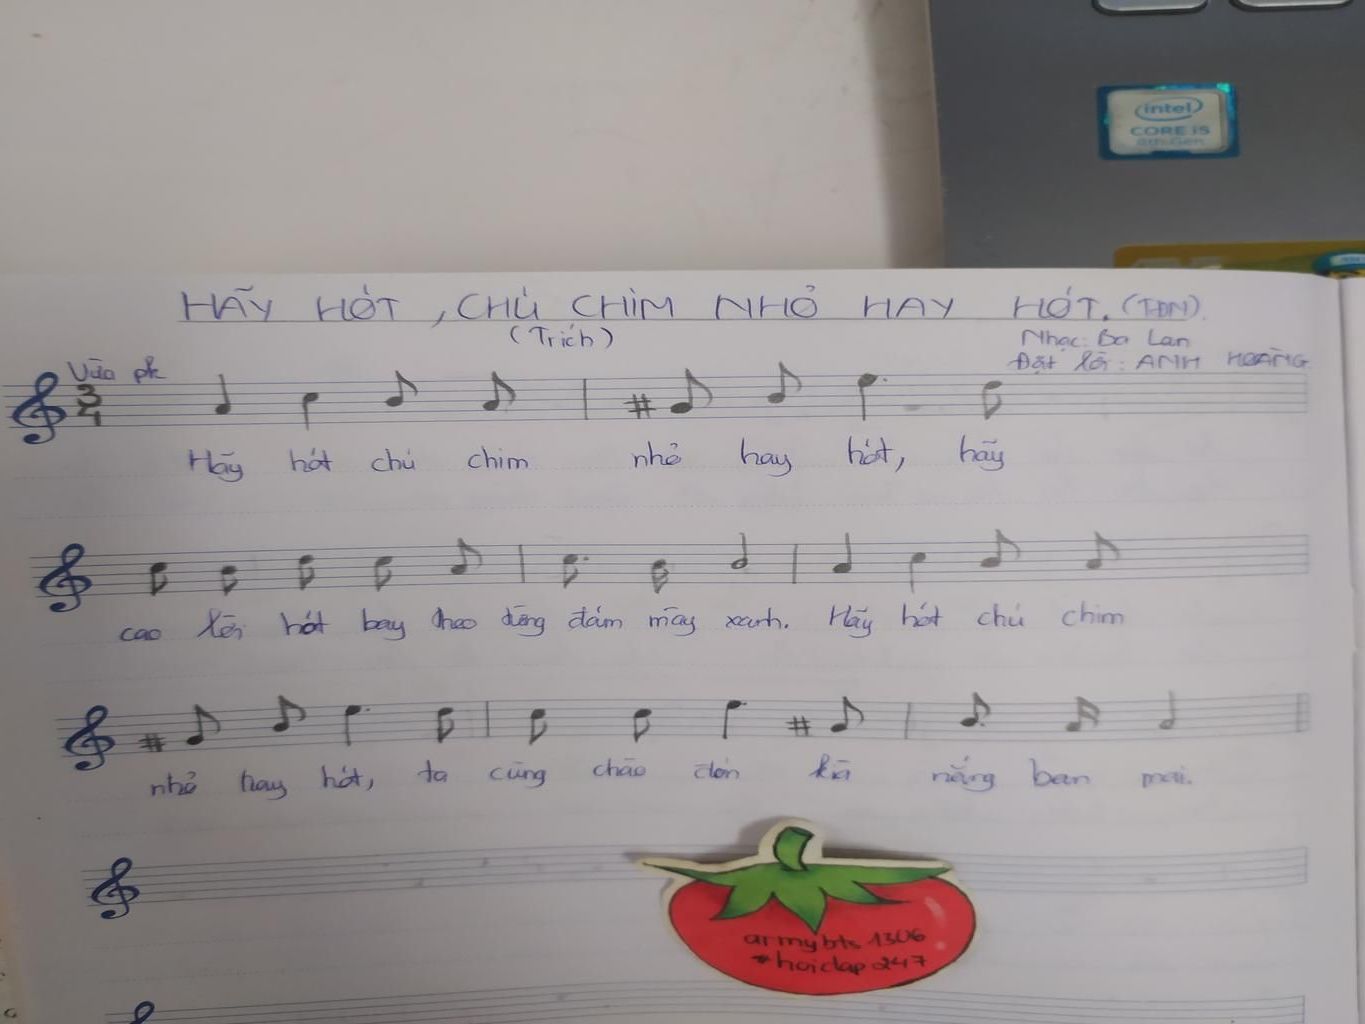 intel
CORE i5
8th Gen
HÃY HÓT, CHÚ CHIM NHỎ HAY HÓT. (TĐN).
(Trích)
Nhạc: Ba Lan
Vừa phải
Đặt lời: ANH HOÀNG
3
4
Hãy hót chú chim nhỏ hay hót, hãy
cao lời hót bay theo từng đám mây xanh. Hãy hót chú chim
nhỏ hay hót, ta cùng chào đón kìa nắng ban mai.
armybts 1306
#hoidap247